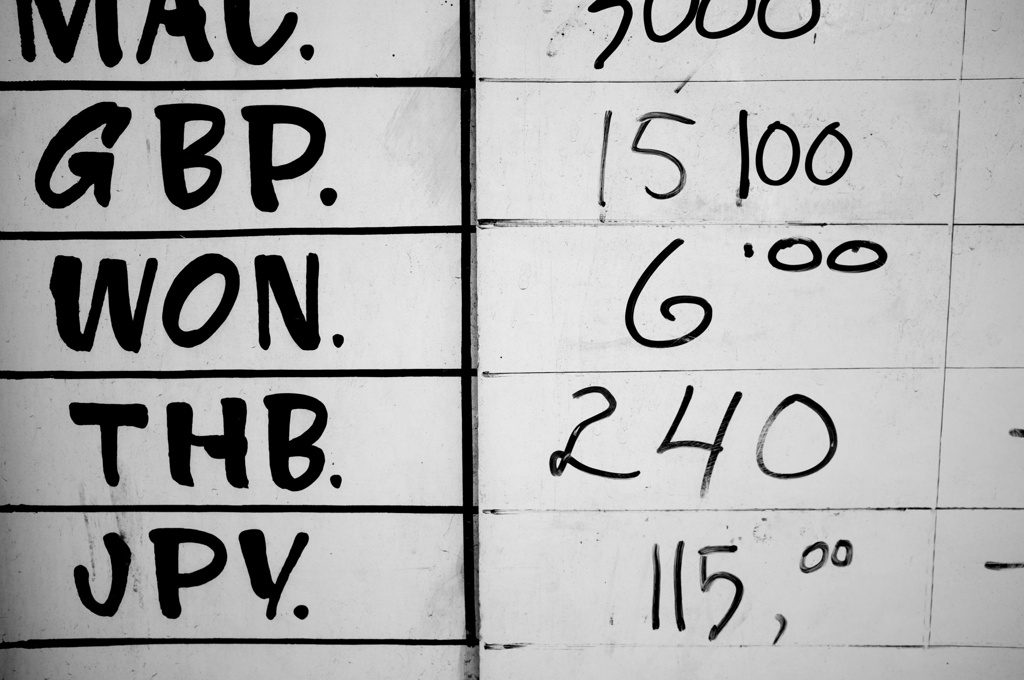 MAC. 3000
GBP. 15 100
WON. 6.00
THB. 240
JPY. 115,00